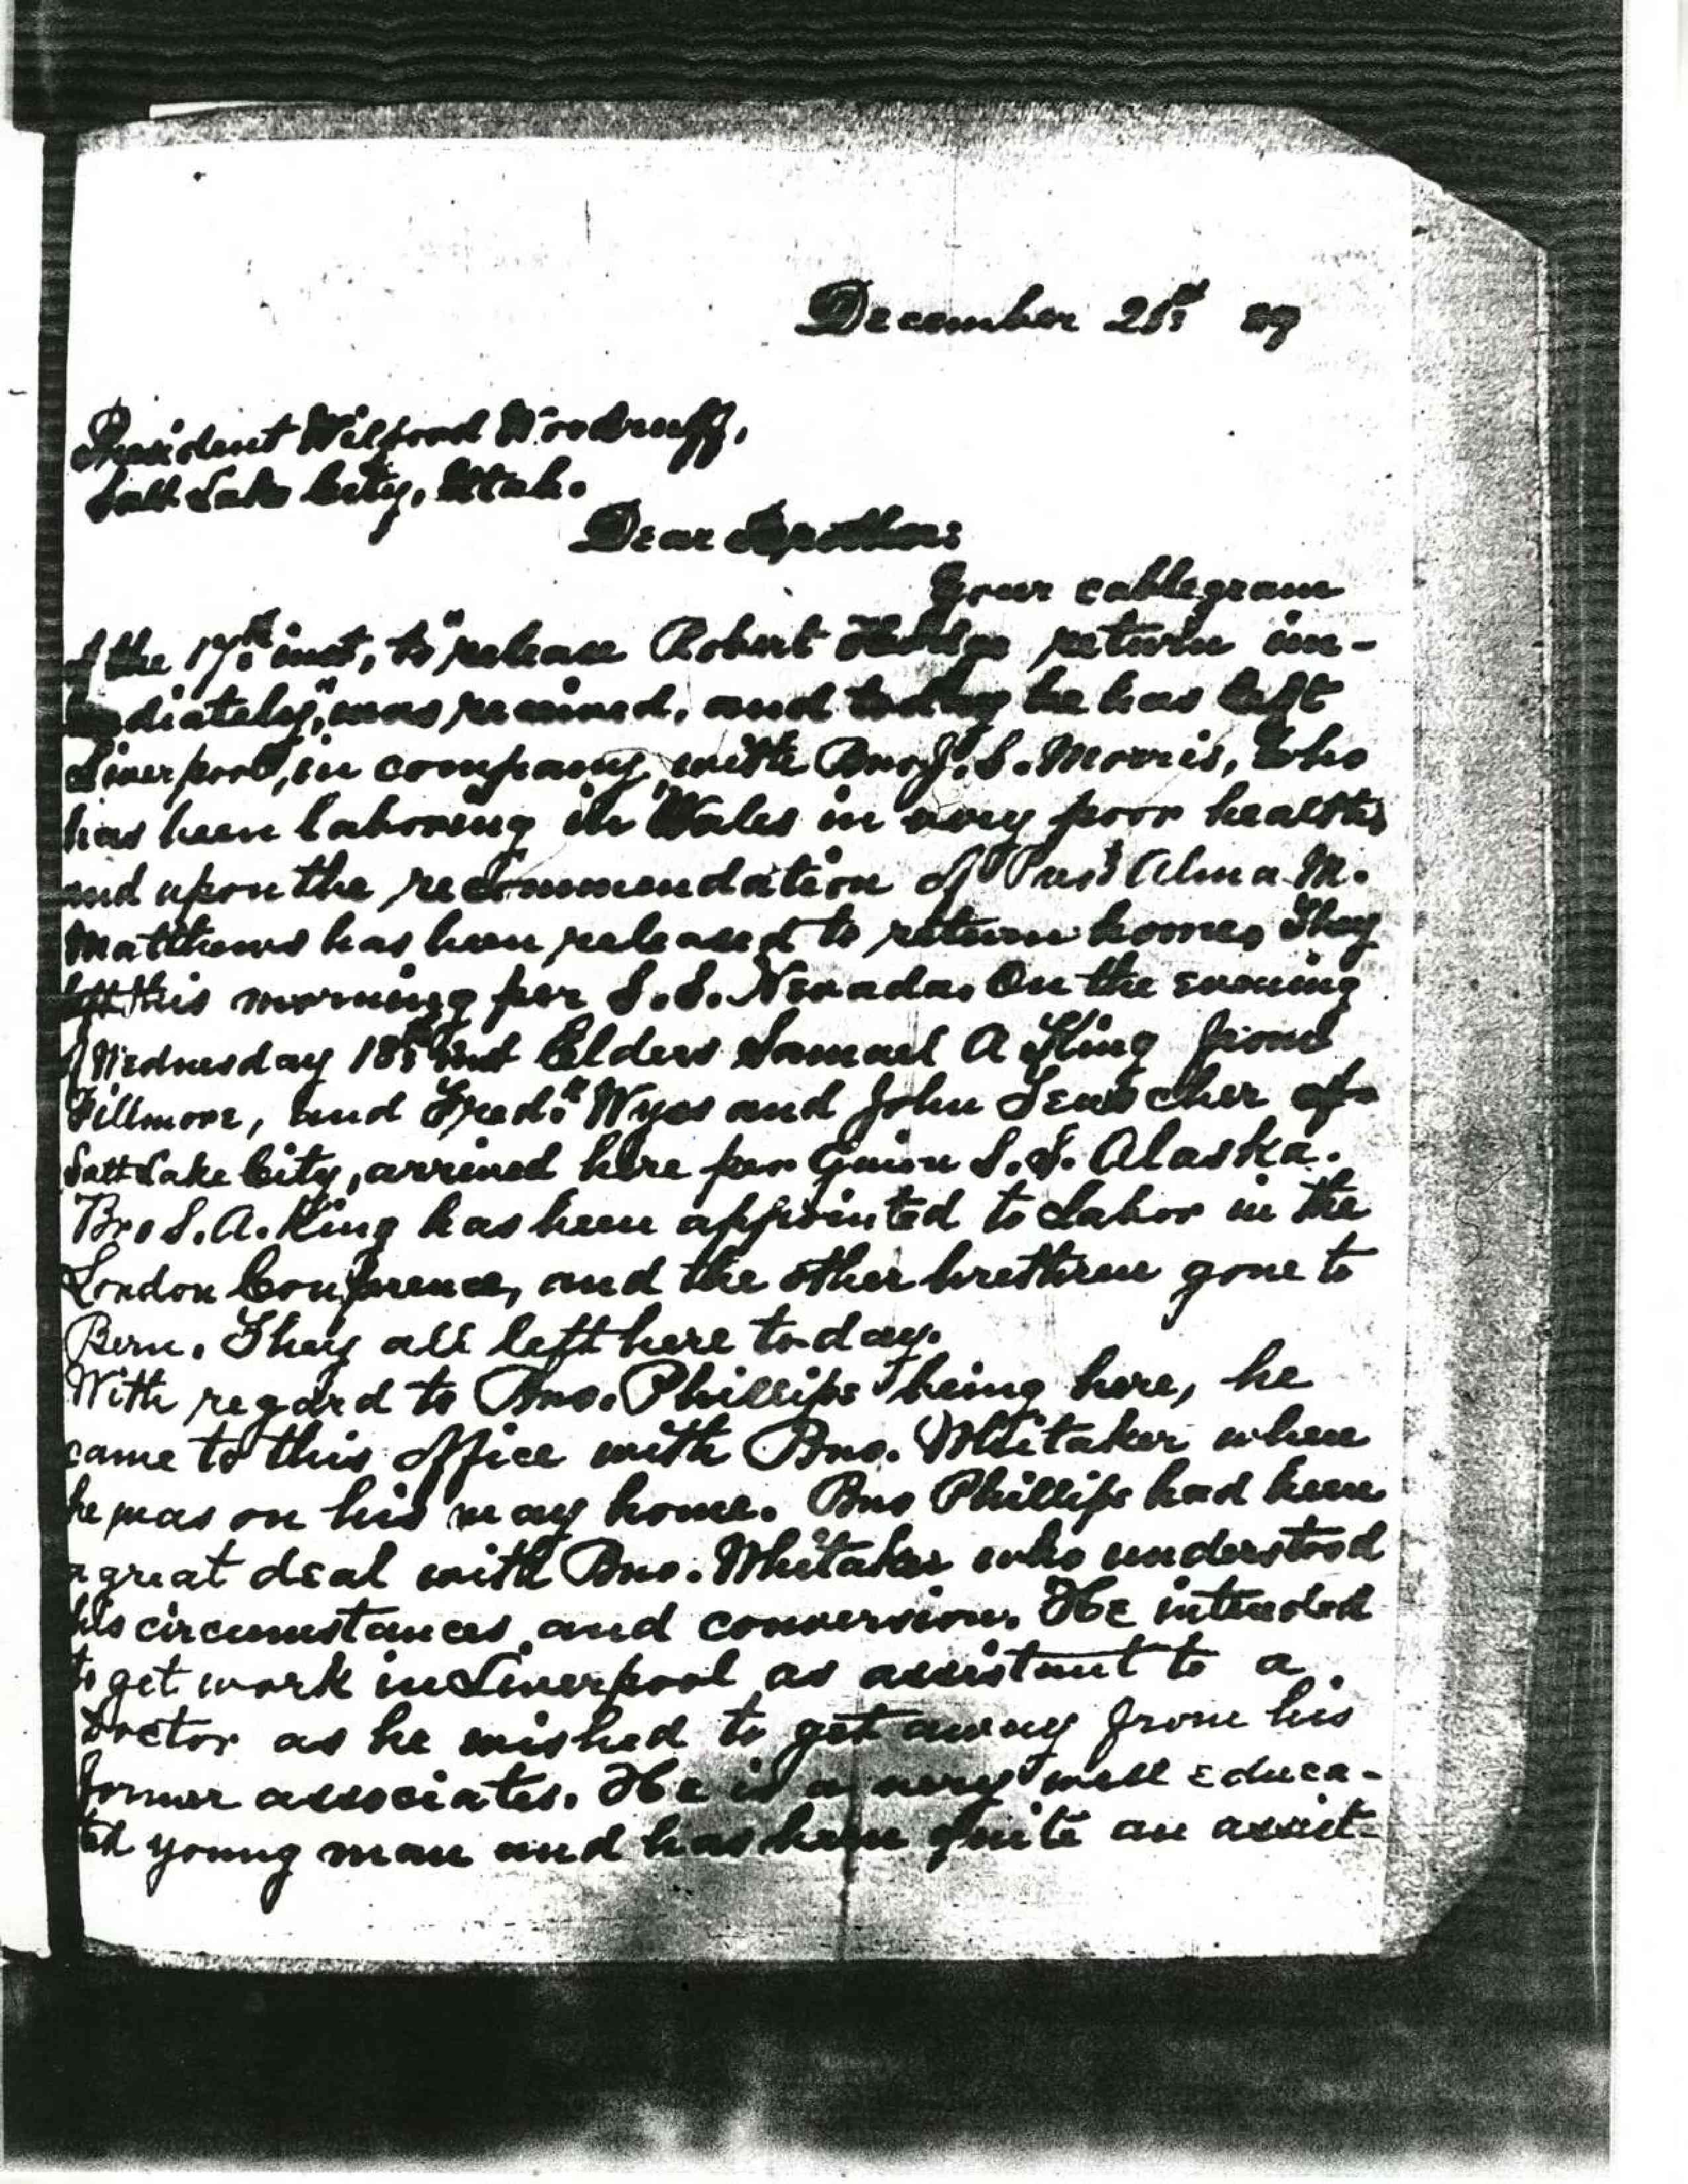 December 21st 89
President Wilford Woodruff,
Salt Lake City, Utah.
Dear Brother:
Your cablegram
of the 17th inst, to "release Robert return im-
mediately," was received, and today he has left
Liverpool, in company with Bro J. S. Morris, who
has been laboring in Wales in very poor health,
and upon the recommendation of Prest Alma M.
Matthews has been released to return home. They
left this morning per S.S. Nevada. On the evening
of Wednesday 18th inst Elders Samuel A King from
Fillmore, and Fredk Wyss and John of
Salt Lake City, arrived here per Guion S.S. Alaska.
Bro S. A. King has been appointed to labor in the
London Conference, and the other brethren gone to
Bern. They all left here to-day.
With regard to Bro. Phillips' being here, he
came to this office with Bro. Whitaker when
he was on his way home. Bro Phillips had been
a great deal with Bro. Whitaker who understood
his circumstances and conversion. He intended
to get work in Liverpool as assistant to a
Doctor as he wished to get away from his
former associates. He is a very well educa-
ted young man and has been quite an assist-